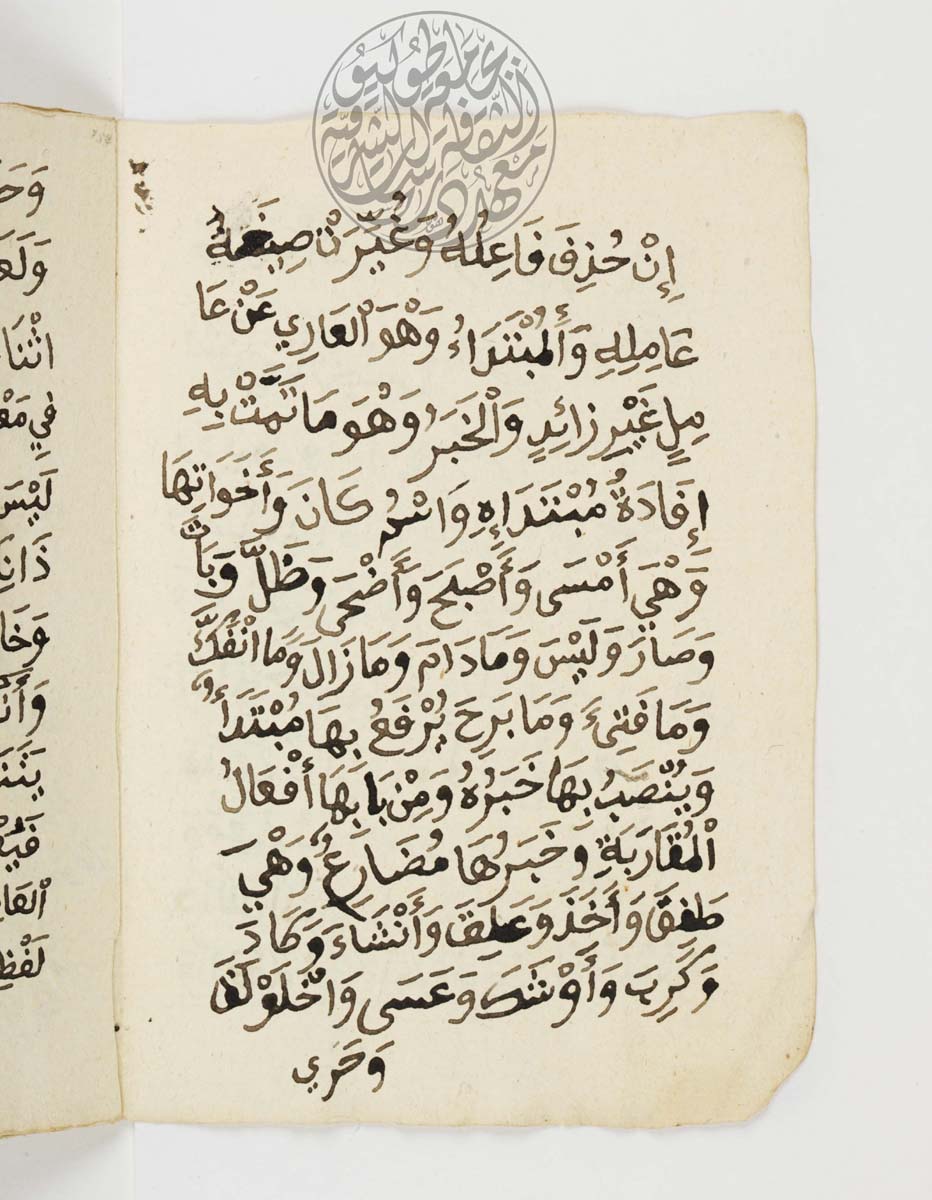 إِنْ حُذِفَ فَاعِلُهُ وَغُيِّرَتْ صِيغَةُ
عَامِلِهِ وَأَلْمُبْتَدَاءُ وَهْوَ ٱلْعَارِي عَنْ عَا
مِلٍ غَيْرِ زَائِدٍ وَالْخَبَرُ وَهُوَ مَا تَمَّتْ بِهِ
إِفَادَةُ مُبْتَدَاهِ وَاسْمُ كَانَ وَأَخَوَاتِهَا
وَهْيَ أَمْسَى وَأَصْبَحَ وَأَضْحَى وَظَلَّ وَبَاتَ
وَصَارَ وَلَيْسَ وَمَادَامَ وَمَازَالَ وَمَا انْفَكَّ
وَمَا فَتِئَ وَمَا بَرِحَ يُرْفَعُ بِهَا مُبْتَدَأٌ
وَيُنْصَبُ بِهَا خَبَرُهُ وَمِنْ بَابِهَا أَفْعَالُ
الْمُقَارَبَةِ وَخَبَرُهَا مُضَارِعٌ وَهْيَ
طَفِقَ وَأَخَذَ وَعَلِقَ وَأَنْشَاءَ وَكَادَ
وَكَرِبَ وَأَوْشَكَ وَعَسَى وَاخْلَوْلَقَ
وَحَرِي